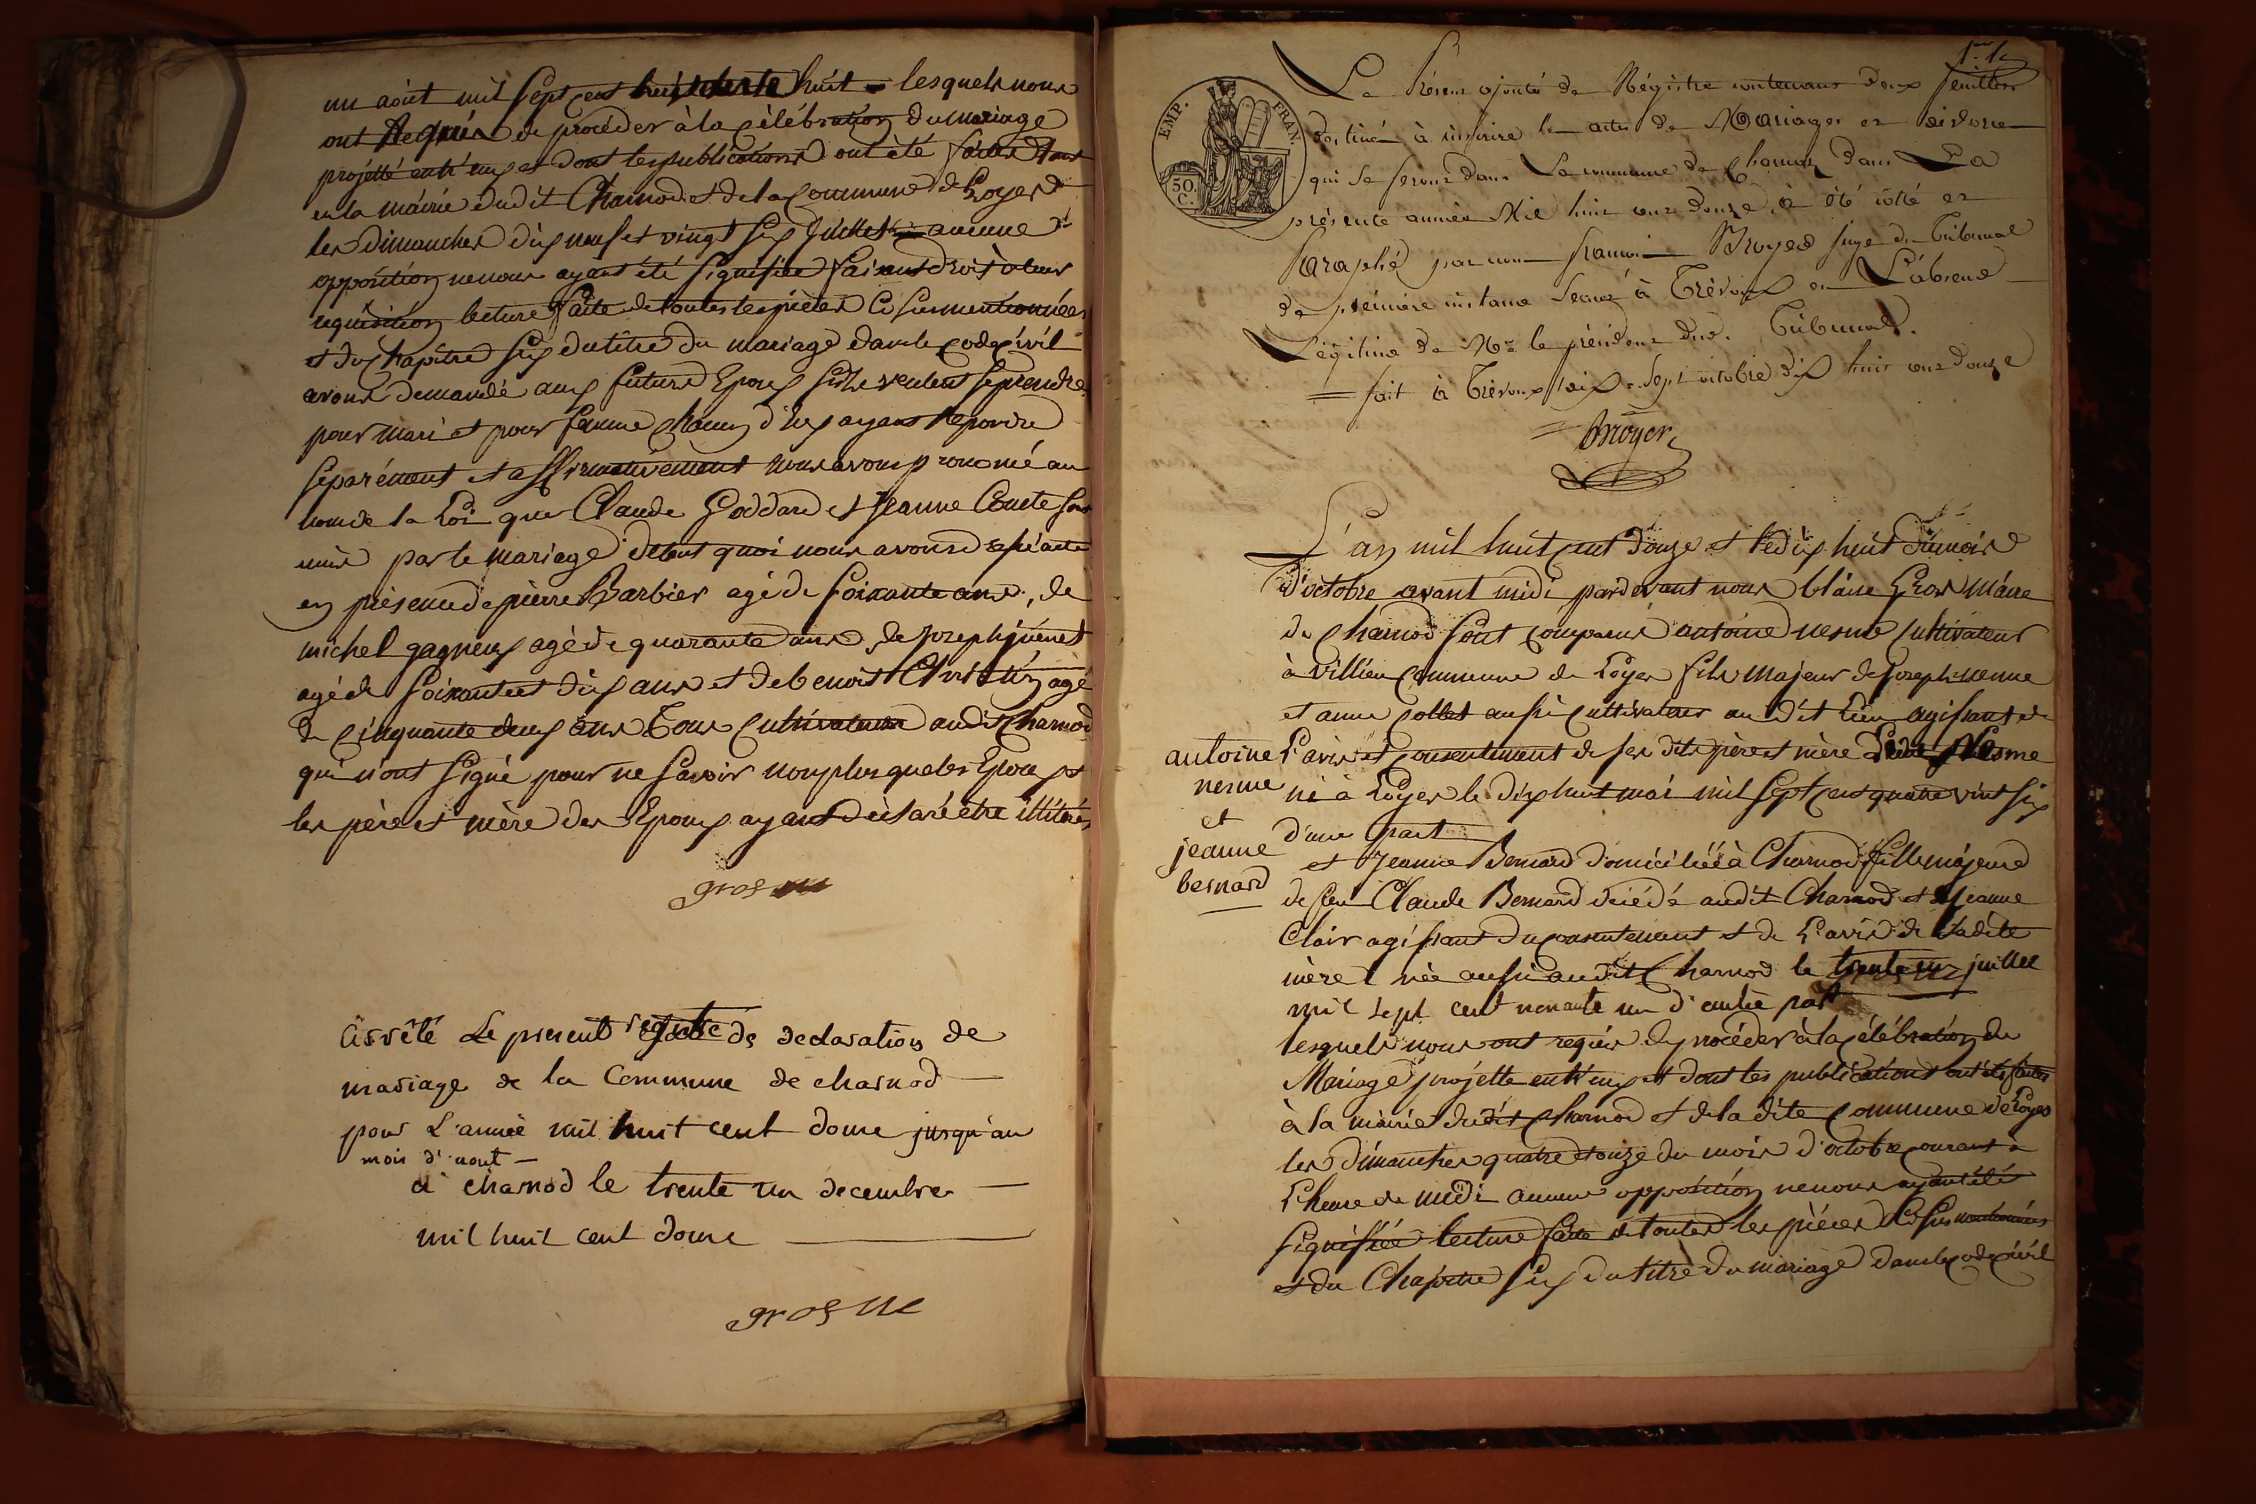 un août mil sept cent huit lesquels nous
ont Requis de procéder à la célébration du mariage
projetté entr'eux et dont les publications ont été faites
en la mairie dudit Charnod et de la Commune de Loyer
les dimanches dix neuf et vingt six juillet aucune
opposition ne nous ayant été signifiée faisant droit à leur
réquisition lecture faite de toutes les pièces ci susmentionnées
et du chapitre six du titre du mariage dans le code civil
avons demandé aux futurs Epoux s'ils veulent se prendre
pour mari et pour femme chacun d'eux ayant Repondu
séparément et affirmativement nous avons prononcé au
nom de la Loi que Claude Goddard et Jeanne Comte sont
unis par le mariage de tout quoi nous avons dressé acte
en présence de pierre Barbier agé de soixante ans, de
michel gagneux agé de quarante ans, de joseph
agé de soixante et dix ans et de benoit Christin agé
de cinquante deux ans Tous Cultivateurs audit Charnod
qui n'ont signé pour ne savoir non plus que les Epoux
les père et mère des Epoux ayant déclaré être illitérés
gros me
arrêté Le present registre de declaration de
mariage de la Commune de charnod
pour L'année mil huit cent douse jusqu'au
mois d'aout
à charnod le trente un decembre
mil huit cent douse
gros me
1er
Le Présent ajouté de Régistre contenant deux feuillets
destiné à inscrire les actes de Mariages et divorces
qui se feront dans La commune de Charnoz dans La
présente année Mil huit cent douze, a été cotté et
Paraphé par nous francois Broyer juge du Tribunal
de première instance séant à Trévoux en L'absence
Légitime de Mr. le président dud. Tribunal.
fait à Trévoux le dix sept octobre dix huit cent douze
Broyer
EMP. FRAN.
50. C.
L'an mil huit cent douze et le dix huit du mois
d'octobre avant midi pardevant nous blaise Gros Maire
de Charnod sont comparus antoine nesme Cultivateur
à villieu Commune de Loyer fils majeur de Joseph nesme
et anne Collet aussi Cultivateurs audit lieu agissant de
L'avis et consentement de ses dits père et mère Ledit Nesme
né à Loyer le dix huit mai mil sept cent quatre vint six
d'une part
et Jeanne Bernard domiciliée à Charnod fille majeure
de feu Claude Bernard décédé audit Charnod et Jeanne
Clair agissant du consentement et de L'avis de sadite
mère née aussi audit Charnod le trente un juillet
mil sept cent nonante un d'autre part
lesquels nous ont requis de procéder à la célébration du
Mariage projetté entr'eux et dont les publications ont été faites
à la mairie dudit Charnod et de la dite Commune de Loyer
les dimanches quatre et onze du mois d'octobre courant à
L'heure de midi aucune opposition ne nous ayant été
signifiée lecture faite de toutes les pièces ci susmentionnées
et du Chapitre six du titre du mariage dans le code civil
antoine
nesme
et
jeanne
bernard